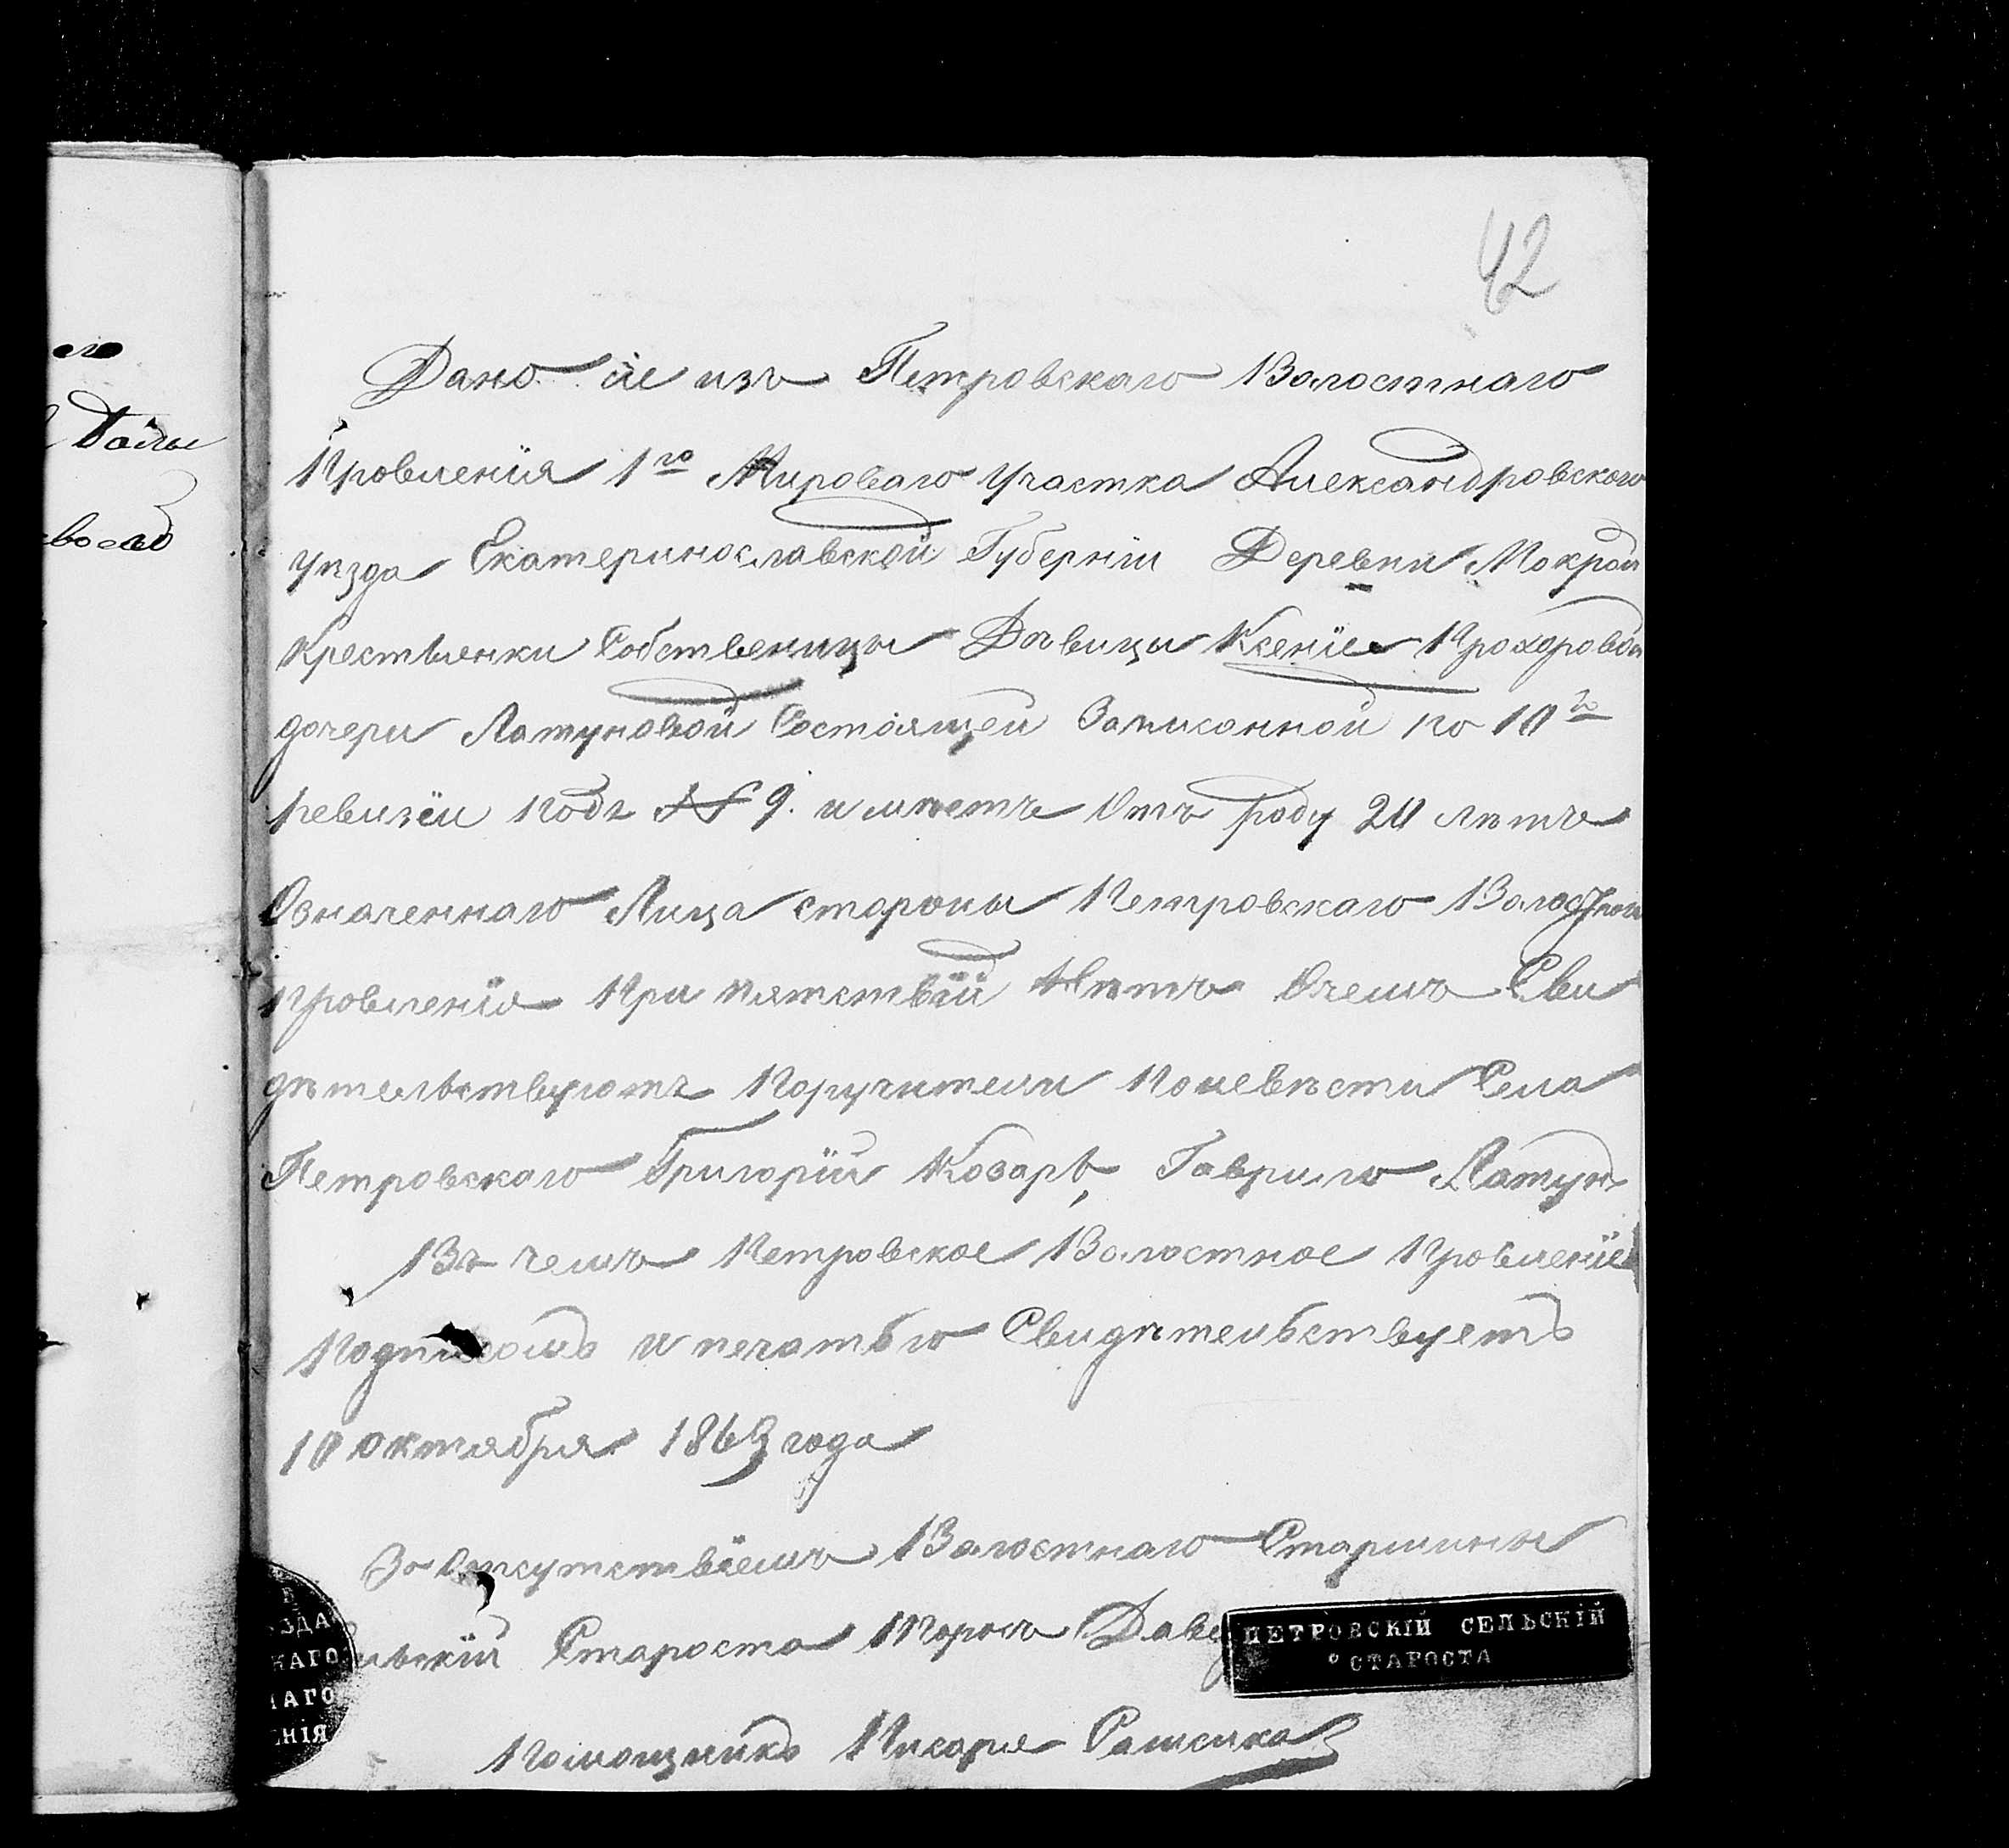 42
Дано сіе изъ Петровскаго Волостнаго
Провленія 1го Мироваго Участка Александровского
уѣзда Екатеринославской Губерніи Деревни Мокрой
Крестьянки Собственицы Дѣвицы Ксеніе Прохоровой
дочери Латуновой Состоящей Записонной по 10й
ревизіи подъ № 9. имѣетъ Отъ роду 20 лѣтъ
Означеннаго Лица стороны Петровскаго
провленія При пятствій Нѣтъ Очемъ Сви
дѣтельствуютъ Поручители Поневѣсти Села
Петровскаго Григорій Козаръ, Гаврило Латун
Въ чемъ Петровское Волостное Провленіе
и печатью Свидѣтельствуетъ
10 Октября 1869 года
За Отсутствіемъ Волостнаго Старшины
льскій Староста
ПЕТРОВСКІЙ СЕЛЬСКІЙ
СТАРОСТА
ЗДА
НАГО
НАГО
НІЯ
Помощникъ Писаря